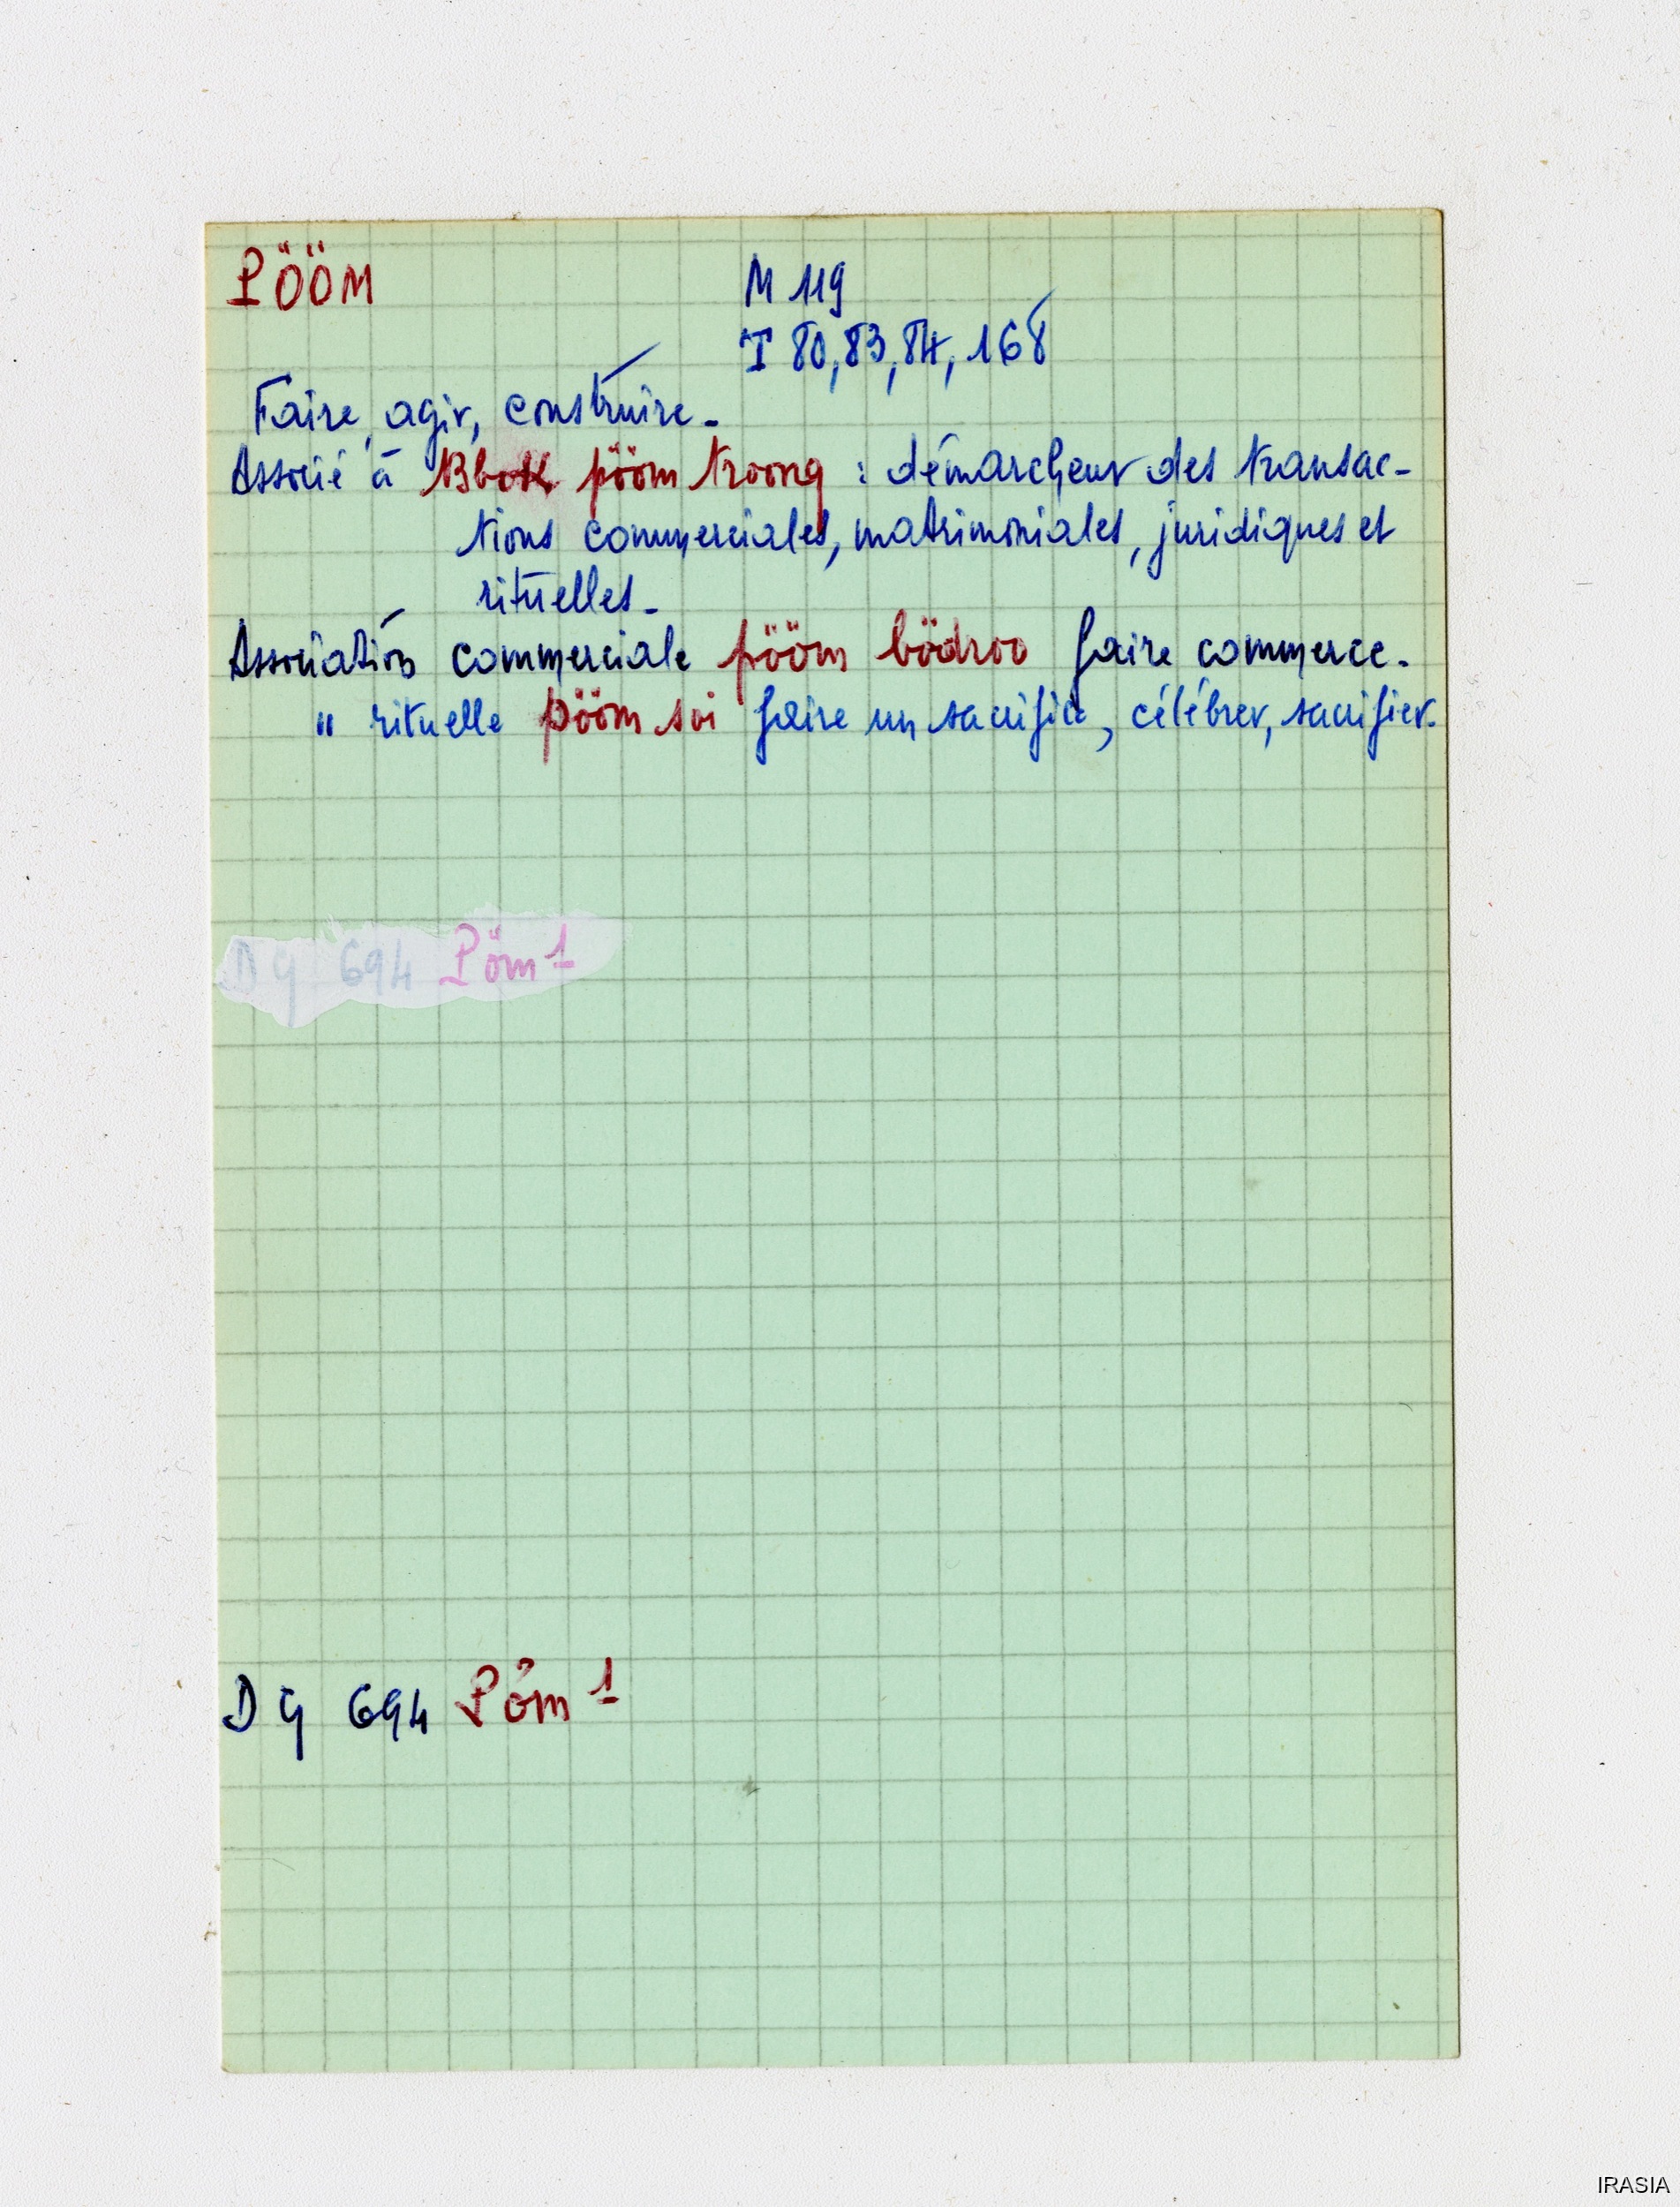 PÖÖM
M 119
T 80, 83, 84, 168
Faire, agir, construire.
Associé à pööm troong : démarcheur des transac-
tions commerciales, matrimoniales, juridiques et
rituelles.
Association commerciale pööm bödroo faire commerce.
" rituelle pööm soi faire un sacrifice, célébrer, sacrifier.
D G 694 Pöm 1
D G 694 Pöm 1
IRASIA